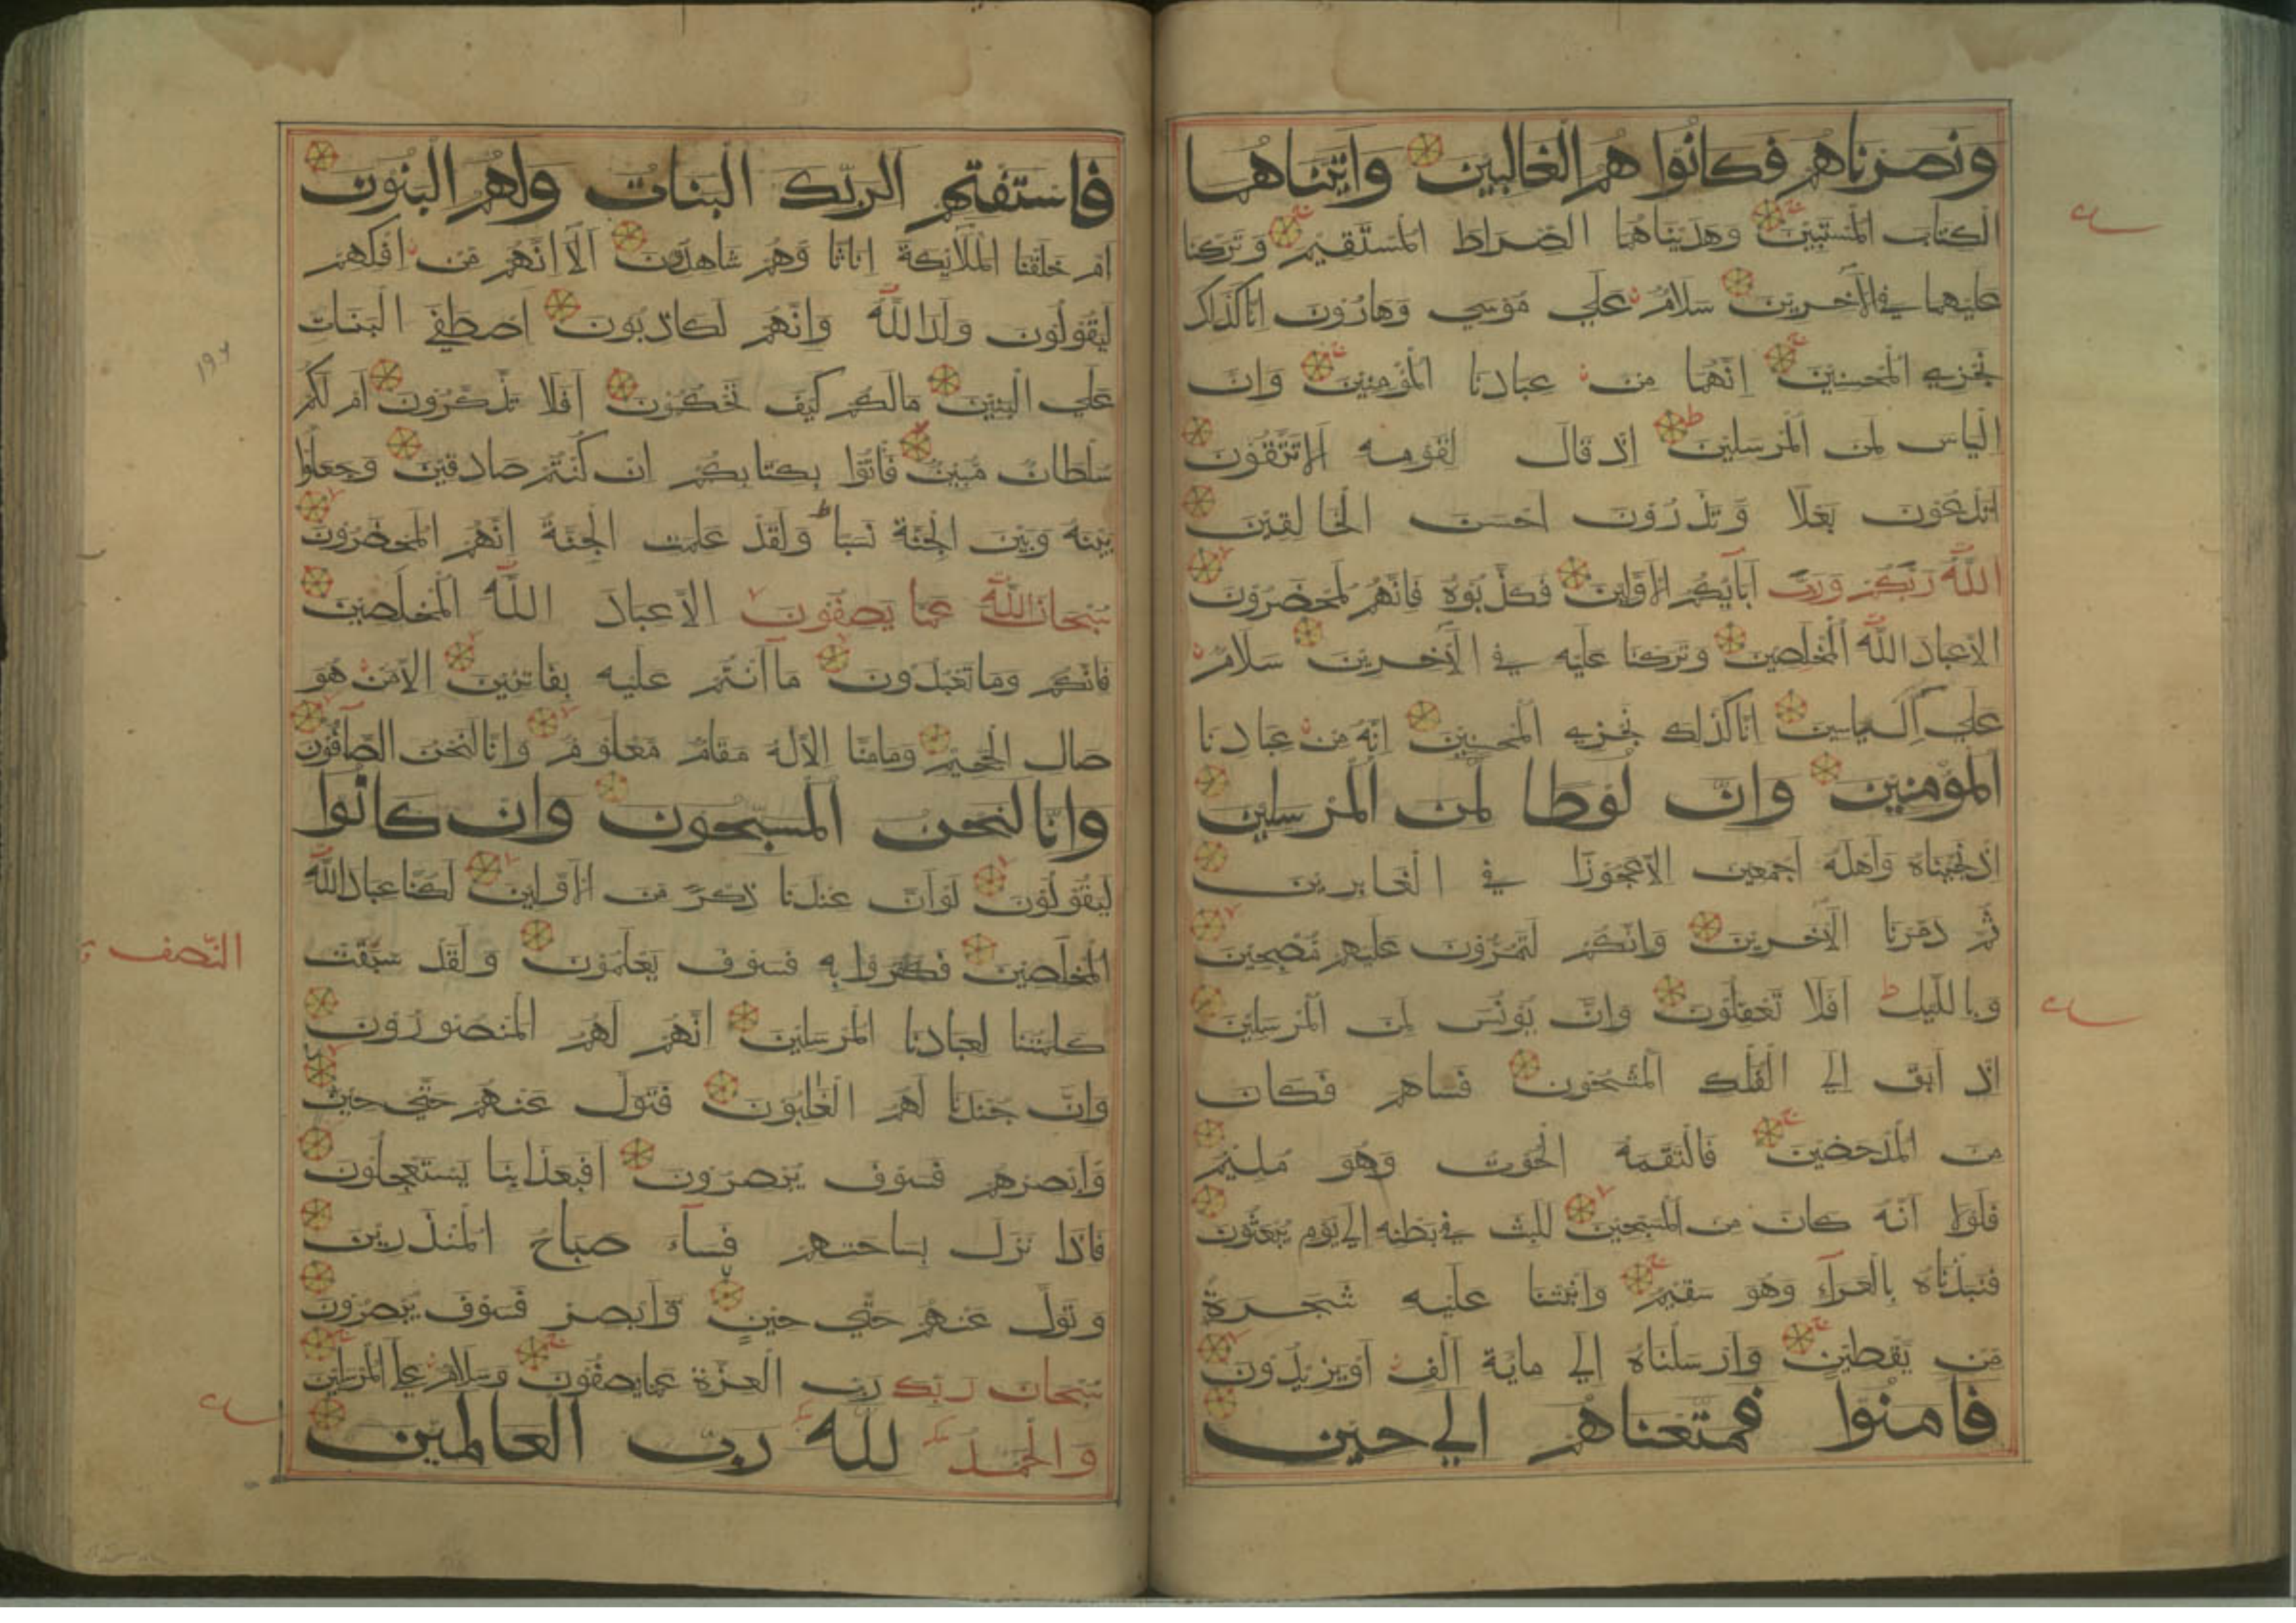 ونصرناهم فكانوا هم الغالبين واتيناهما
الكتاب المستبين وهديناهما الصراط المستقيم وتركنا
عليهما في الآخرين سلام علي موسي وهارون انا كذلك
نجزي المحسنين انهما من عبادنا المؤمنين وان
الياس لمن المرسلين اذ قال لقومه الا تتقون
اتدعون بعلا وتذرون احسن الخالقين
الله ربكم ورب آبائكم الاولين فكذبوه فانهم لمحضرون
الا عباد الله المخلصين وتركنا عليه في الآخرين سلام
علي إل ياسين انا كذلك نجزي المحسنين انه من عبادنا
المؤمنين وان لوطا لمن المرسلين
اذ نجيناه واهله اجمعين الا عجوزا في الغابرين
ثم دمرنا الآخرين وانكم لتمرون عليهم مصبحين
وبالليل افلا تعقلون وان يونس لمن المرسلين
اذ ابق الي الفلك المشحون فساهم فكان
من المدحضين فالتقمه الحوت وهو مليم
فلولا انه كان من المسبحين للبث في بطنه الي يوم يبعثون
فنبذناه بالعراء وهو سقيم وانبتنا عليه شجرة
من يقطين وارسلناه الي ماية الف او يزيدون
فامنوا فمتعناهم الي حين
فاستفتهم الربك البنات ولهم البنون
ام خلقنا الملائكة اناثا وهم شاهدون ألا انهم من افكهم
ليقولون ولد الله وانهم لكاذبون اصطفي البنات
علي البنين مالكم كيف تحكمون افلا تذكرون ام لكم
سلطان مبين فاتوا بكتابكم ان كنتم صادقين وجعلوا
بينه وبين الجنة نسبا ولقد علمت الجنة انهم لمحضرون
سبحان الله عما يصفون الا عباد الله المخلصين
فانكم وما تعبدون ما انتم عليه بفاتنين الا من هو
صال الجحيم وما منا الا له مقام معلوم وانا لنحن الصآفون
وانا لنحن المسبحون وان كانوا
ليقولون لو ان عندنا ذكرا من الاولين لكنا عباد الله
المخلصين فكفروا به فسوف يعلمون ولقد سبقت
كلمتنا لعبادنا المرسلين انهم لهم المنصورون
وان جندنا لهم الغالبون فتول عنهم حتي حين
وابصرهم فسوف يبصرون افبعذابنا يستعجلون
فاذا نزل بساحتهم فسآء صباح المنذرين
وتول عنهم حتي حين وابصر فسوف يبصرون
سبحان ربك رب العزة عما يصفون وسلام علي المرسلين
والحمد لله رب العالمين
النصف